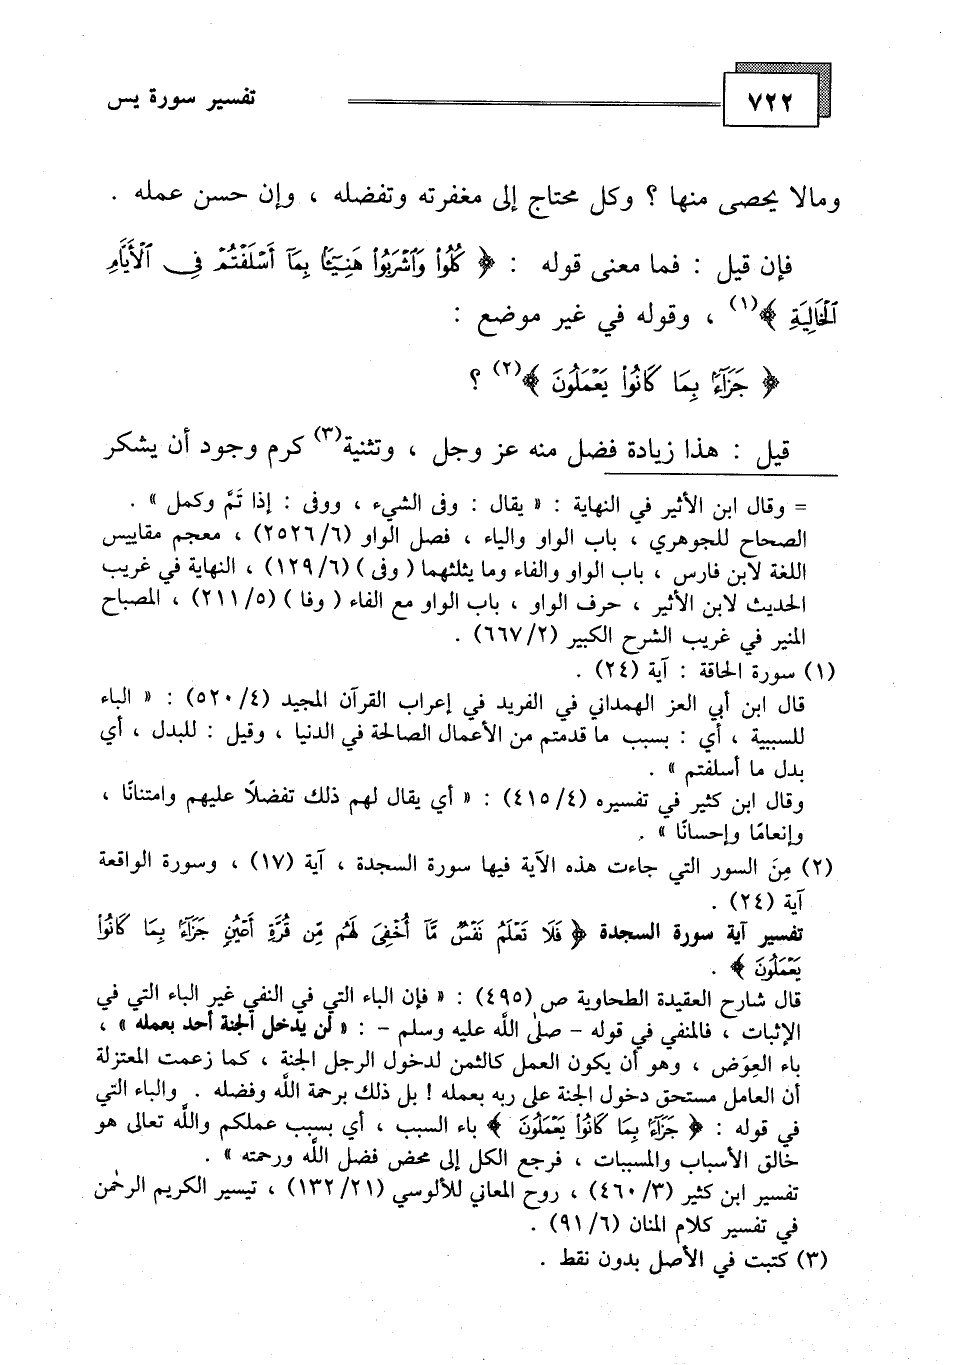 ٧٢٢
تفسير سورة يس
ومالا يحصى منها ؟ وكل محتاج إلى مغفرته وتفضله ، وإن حسن عمله .
فإن قيل : فما معنى قوله : ﴿ كُلُوا۟ وَٱشْرَبُوا۟ هَنِيٓـًٔۢا بِمَآ أَسْلَفْتُمْ فِى ٱلْأَيَّامِ
ٱلْخَالِيَةِ ﴾(١) ، وقوله في غير موضع :
﴿ جَزَآءًۢ بِمَا كَانُوا۟ يَعْمَلُونَ ﴾(٢) ؟
قيل : هذا زيادة فضل منه عز وجل ، وتثنية(٣) كرم وجود أن يشكر
= وقال ابن الأثير في النهاية : « يقال : وفى الشيء ، ووفى : إذا تَمَّ وكمل » .
الصحاح للجوهري ، باب الواو والياء ، فصل الواو (٢٥٢٦/٦) ، معجم مقاييس
اللغة لابن فارس ، باب الواو والفاء وما يثلثهما ( وفى ) (١٢٩/٦) ، النهاية في غريب
الحديث لابن الأثير ، حرف الواو ، باب الواو مع الفاء ( وفا ) (٢١١/٥) ، المصباح
المنير في غريب الشرح الكبير (٦٦٧/٢) .
(١) سورة الحاقة : آية (٢٤) .
قال ابن أبي العز الهمداني في الفريد في إعراب القرآن المجيد (٥٢٠/٤) : « الباء
للسببية ، أي : بسبب ما قدمتم من الأعمال الصالحة في الدنيا ، وقيل : للبدل ، أي
بدل ما أسلفتم » .
وقال ابن كثير في تفسيره (٤١٥/٤) : « أي يقال لهم ذلك تفضلاً عليهم وامتنانًا ،
وإنعامًا وإحسانًا » .
(٢) مِنَ السور التي جاءت هذه الآية فيها سورة السجدة ، آية (١٧) ، وسورة الواقعة
آية (٢٤) .
تفسير آية سورة السجدة ﴿ فَلَا تَعْلَمُ نَفْسٌ مَّآ أُخْفِىَ لَهُم مِّن قُرَّةِ أَعْيُنٍ جَزَآءًۢ بِمَا كَانُوا۟
يَعْمَلُونَ ﴾ .
قال شارح العقيدة الطحاوية ص (٤٩٥) : « فإن الباء التي في النفي غير الباء التي في
الإثبات ، فالمنفي في قوله – صلى الله عليه وسلم – : « لن يدخل الجنة أحد بعمله » ،
باء العِوَض ، وهو أن يكون العمل كالثمن لدخول الرجل الجنة ، كما زعمت المعتزلة
أن العامل مستحق دخول الجنة على ربه بعمله ! بل ذلك برحمة الله وفضله . والباء التي
في قوله : ﴿ جَزَآءًۢ بِمَا كَانُوا۟ يَعْمَلُونَ ﴾ باء السبب ، أي بسبب عملكم والله تعالى هو
خالق الأسباب والمسببات ، فرجع الكل إلى محض فضل الله ورحمته » .
تفسير ابن كثير (٤٦٠/٣) ، روح المعاني للألوسي (١٣٢/٢١) ، تيسير الكريم الرحمٰن
في تفسير كلام المنان (٩١/٦) .
(٣) كتبت في الأصل بدون نقط .